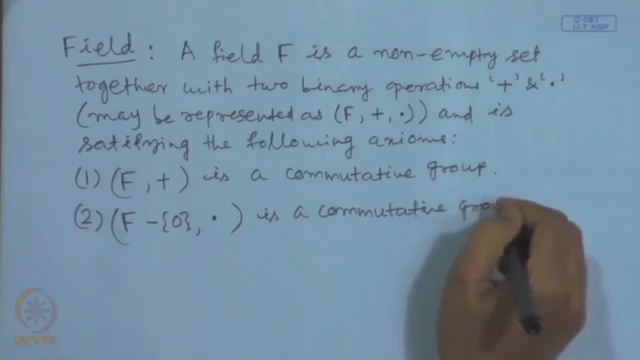 Field : A field F is a non-empty set
together with two binary operations '+' & '.'
(may be represented as (F, +, .)) and is
satisfying the following axioms:
(1) (F, +) is a commutative group.
(2) (F - {0}, .) is a commutative grou
I.I.T. KGP
NPTEL